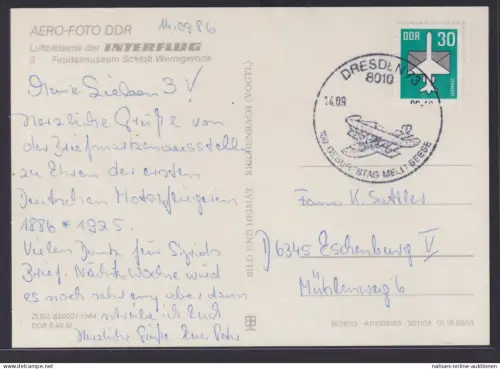 AERO-FOTO DDR
14.09.86
Luftbildserie der INTERFLUG
3 Feudalmuseum Schloß Wernigerode
Meine Lieben 3 V
Herzliche Grüße von
der Briefmarkenausstellung
zu Ehren der ersten
Deutschen Motorfliegerin
1886 * 1925.
Vielen Dank für Sigrids
Brief. Nächste Woche wird
es noch sehr eng aber dann
schreibe ich Euch
Herzliche Grüße Eure
DDR 0,60 M
BILD UND HEIMAT REICHENBACH (VOGTL)
DDR 30
DRESDEN
8010
14.09
100. GEBURTSTAG MELLI BEESE
Fam K. Sattler
D 6345 Eschenburg V
Mühlenweg 6
www.all-stamps-online.eu